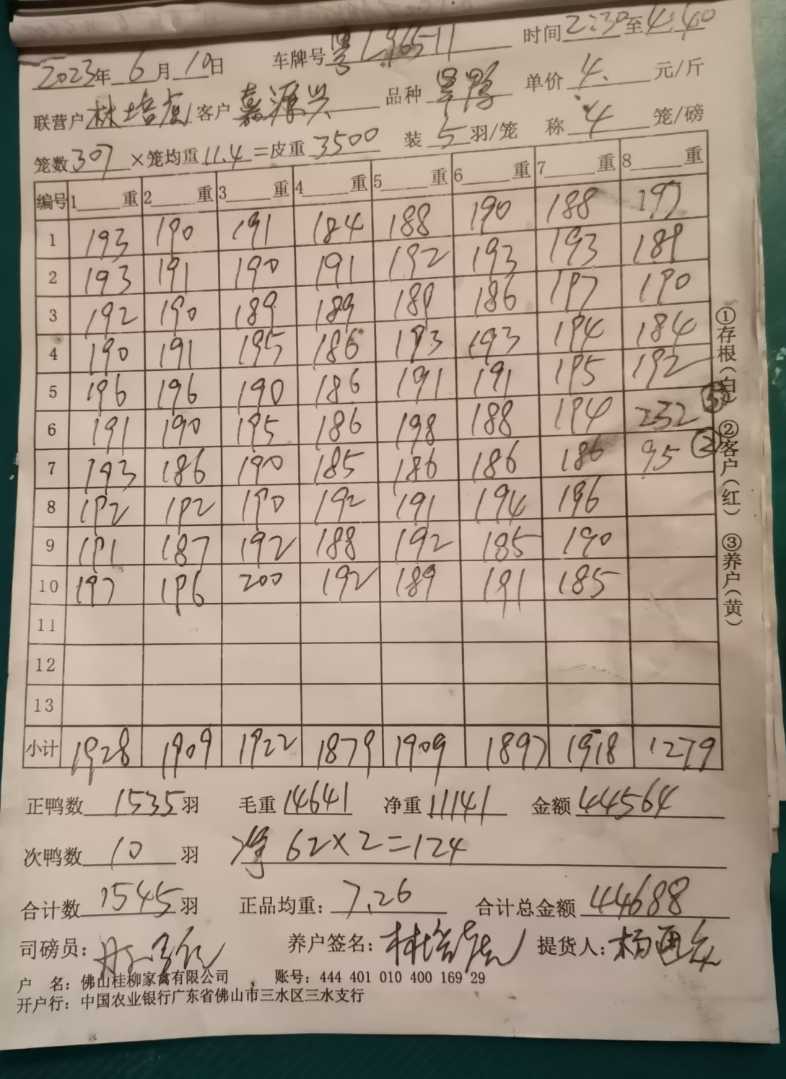 2023年 6 月 10 日 车牌号 粤L96511 时间 2:30 至 4:40
联营户 林培 客户 嘉源兴 品种 单价 4. 元/斤
笼数 307 ×笼均重 11.4 =皮重 3500 装 5 羽/笼 称 4 笼/磅
编号 1 重 2 重 3 重 4 重 5 重 6 重 7 重 8 重
1 193 190 191 184 188 190 188 197
2 193 191 190 191 192 193 193 189
3 192 190 189 189 189 186 197 190
4 190 191 195 186 193 193 194 184
5 196 196 190 186 191 191 195 192
6 191 190 195 186 198 188 194 232 ⑤
7 193 186 190 185 186 186 186 95 ②
8 192 192 190 192 191 194 196
9 191 187 192 188 192 185 190
10 197 196 200 192 189 191 185
11
12
13
小计 1928 1909 1922 1879 1909 1897 1918 1279
正鸭数 1535 羽 毛重 14641 净重 11141 金额 44564
次鸭数 10 羽 净 62×2=124
合计数 1545 羽 正品均重: 7.26 合计总金额 44688
司磅员: 养户签名: 林培 提货人: 杨
户 名: 佛山桂柳家禽有限公司 账号: 444 401 010 400 169 29
开户行: 中国农业银行广东省佛山市三水区三水支行
①存根(白) ②客户(红) ③养户(黄)